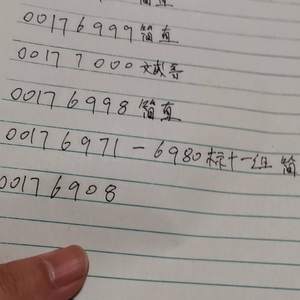 00176999简直
00177000
00176998简直
00176971-6980标十一组 简
00176908